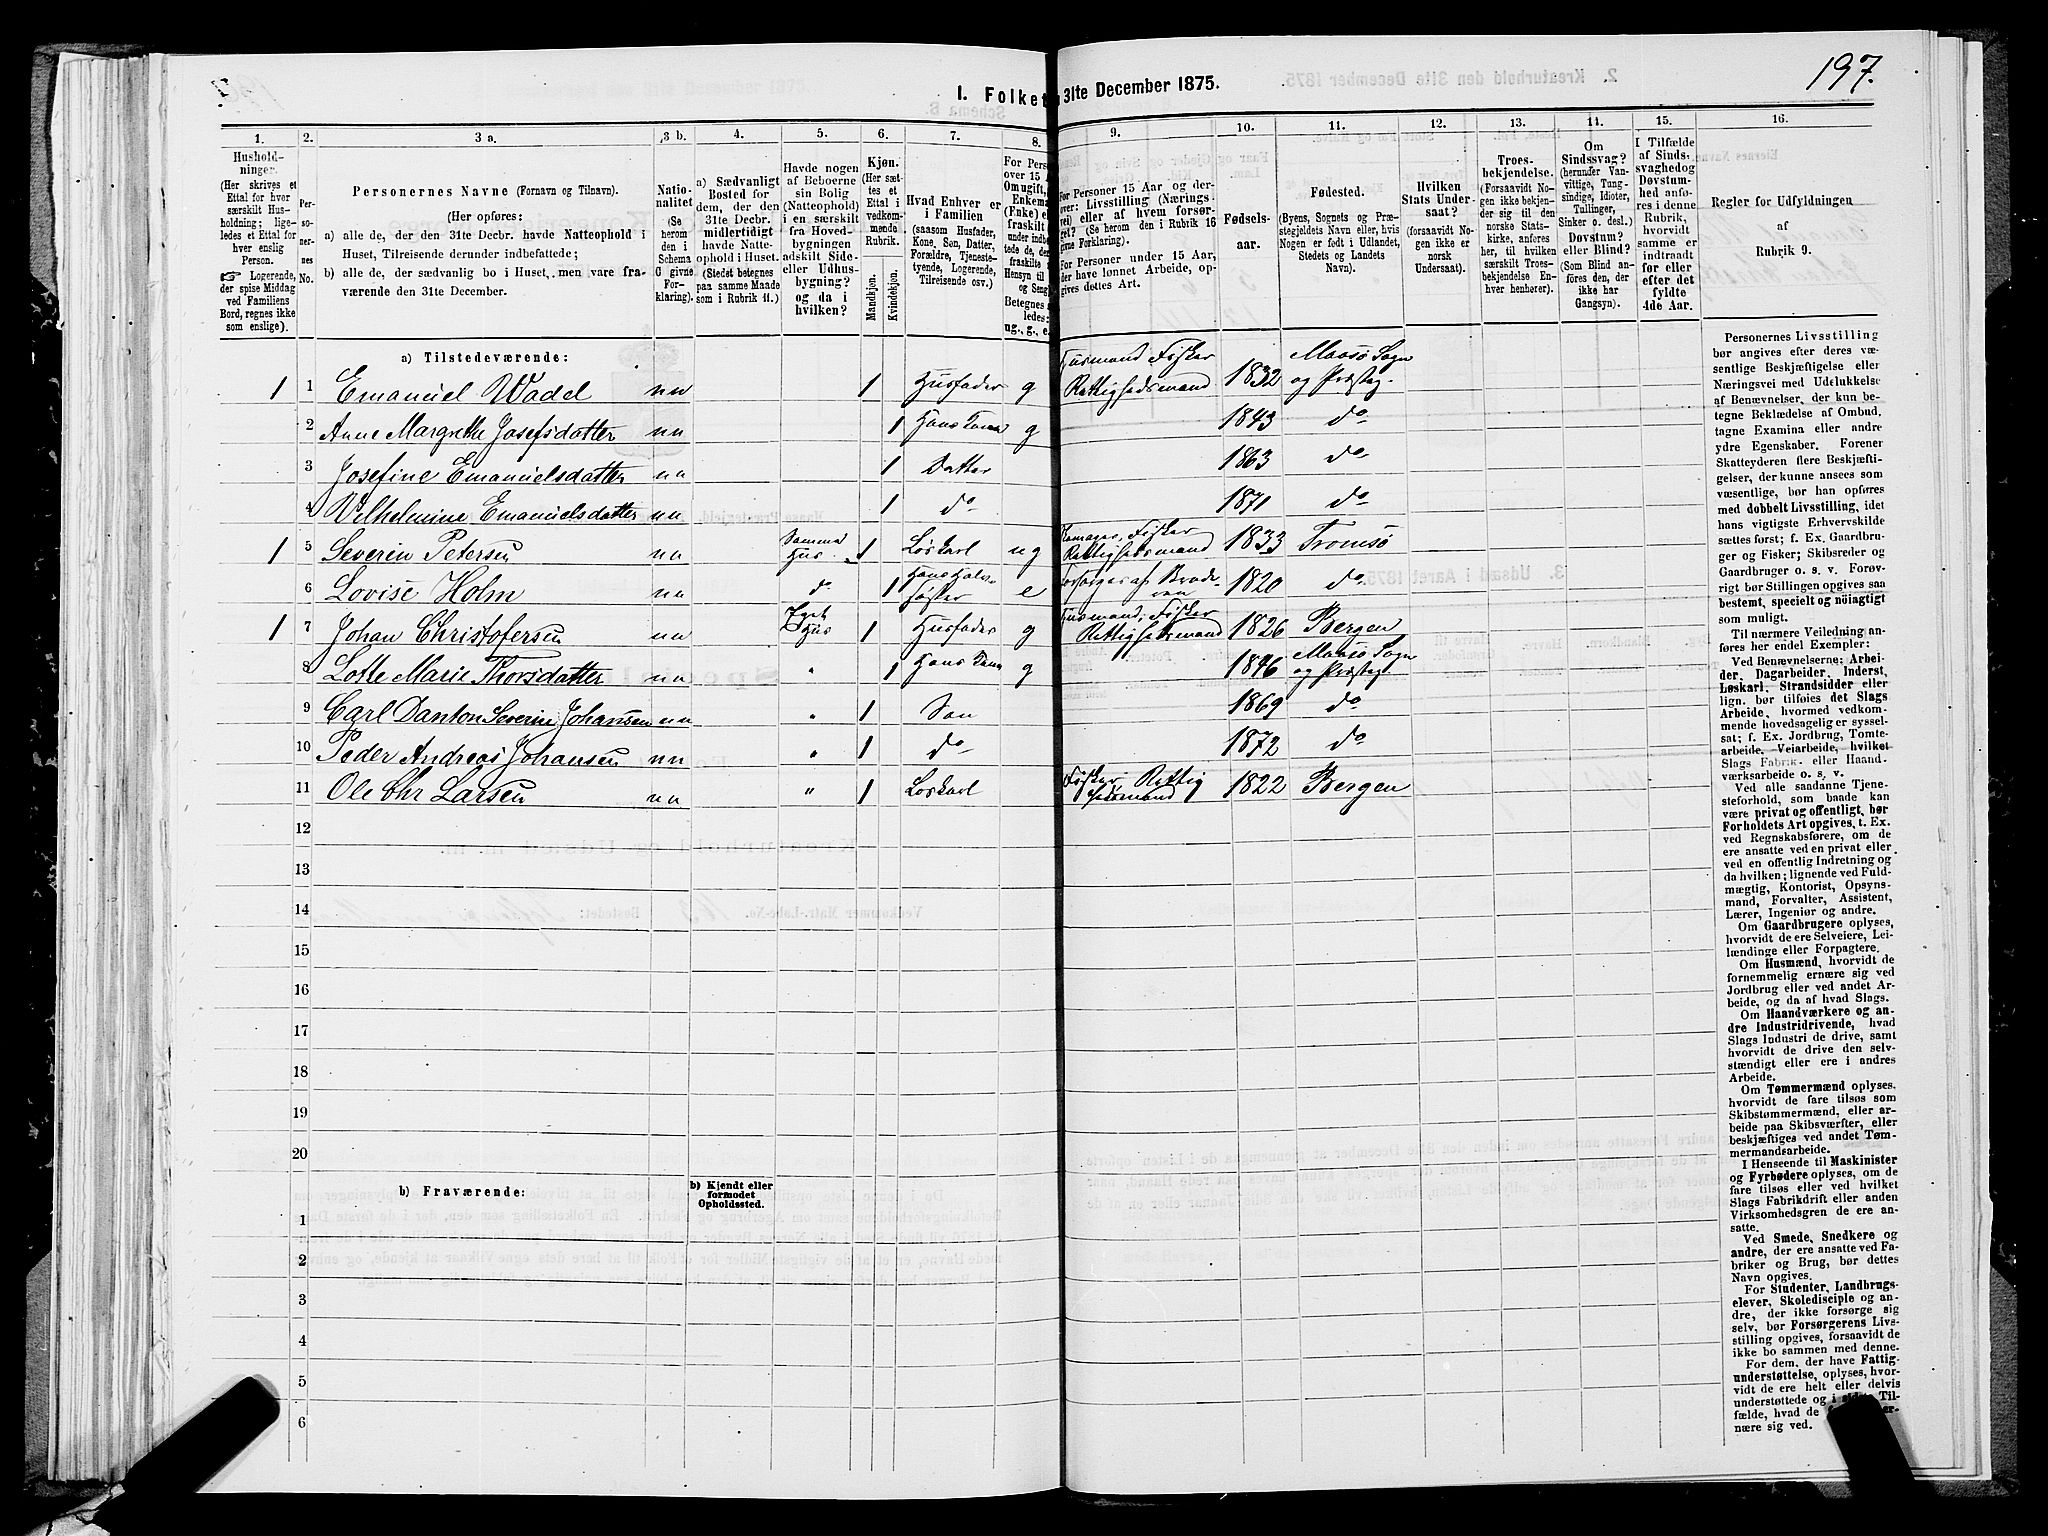 197.
I. Folket 31lte December 1875.
1. 2. 3 a. 3 b. 4. 5. 6. 7. 8. 9. 10. 11. 12. 13. 14. 15. 16.
Hushold-
ninger.
(Her skrives et
Ettal for hver
særskilt Hus-
holdning; lige-
ledes et Ettal for
hver enslig
Person.
☞ Logerende,
der spise Middag
ved Familiens
Bord, regnes ikke
som enslige).
Per-
so-
ner-
nes
No.
Personernes Navne (Fornavn og Tilnavn).
(Her opføres:
a) alle de, der den 31te Decbr. havde Natteophold i
Huset, Tilreisende derunder indbefattede;
b) alle de, der sædvanlig bo i Huset, men vare fra-
værende den 31te December.
Natio-
nalitet
(Se
herom
den i
Schema
C givne
For-
klaring).
a) Sædvanligt
Bosted for
dem, der den
31te Decbr.
midlertidigt
havde Natte-
ophold i Huset.
(Stedet betegnes
paa samme Maade
som i Rubrik 11.)
Havde nogen
af Beboerne
sin Bolig
(Natteophold)
i en særskilt
fra Hoved-
bygningen
adskilt Side-
eller Udhus-
bygning?
og da i
hvilken?
Kjøn.
(Her sæt-
tes et
Ettal i
vedkom-
mende
Rubrik.
Mandkjøn.
Kvindekjøn.
Hvad Enhver er
i Familien
(saasom Husfader,
Kone, Søn, Datter,
Forældre, Tjeneste-
tyende, Logerende,
Tilreisende osv.)
For Perso
over 15
Omugift,
Enkema
(Enke) e
fraskilt
under indb
tede de, d
fraskilte
Hensyn til
og Seng
Betegnes
ledes:
ug., g., e.
For Personer 15 Aar og der-
over: Livsstilling (Nærings-
vei) eller af hvem forsør-
get? (Se herom den i Rubrik 16
givne Forklaring).
For Personer under 15 Aar,
der have lønnet Arbeide, op-
gives dettes Art.
Fødsels-
aar.
Fødested.
(Byens, Sognets og Præ-
stegjeldets Navn eller, hvis
Nogen er født i Udlandet,
Stedets og Landets
Navn).
Hvilken
Stats Under-
saat?
(forsaavidt No-
gen ikke er
norsk
Undersaat).
Troes-
bekjendelse.
(Forsaavidt No-
gen ikke bekjen-
der sig til den
norske Stats-
kirke, anføres
her, til hvilken
særskilt Troes-
bekjendelse En-
hver henhører).
Om
Sindssvag?
(herunder Van-
vittige, Tung-
sindige, Idioter,
Tullinger,
Sinker o. desl.)
Døvstum?
eller Blind?
(Som Blind an-
føres den, der
ikke har
Gangsyn).
I Tilfælde
af Sinds-
svaghed og
Døvstum-
hed anfø-
res i denne
Rubrik,
hvorvidt
samme er
indtraadt
før eller
efter det
fyldte
4de Aar.
Regler for Udfyldningen
af
Rubrik 9.
a) Tilstedeværende:
1 1 Emanuel Wadel nn 1 Husfader g Husmand Fisker Rettighedsmand 1832 Maasø Sogn og Præsteg.
2 Anne Margrethe Josefsdatter nn 1 Hans Kone g 1843 do
3 Josefine Emanuelsdatter nn 1 Datter 1863 do
4 Vilhelmine Emanuelsdatter nn 1 do 1871 do
1 5 Severin Petersen nn Samme Hus 1 Løskarl ug Fisker Rettighedsmand 1833 Tromsø
6 Lovise Holm nn do 1 Hans Halv-søster e Forsørges af Broderen 1820 do
1 7 Johan Christofersen nn Eget Hus 1 Husfader g Husmand, Fisker Rettighedsmand 1826 Bergen
8 Lotte Marie Thorsdatter nn " 1 Hans Kone g 1846 Maasø Sogn og Præsteg.
9 Carl Danton Severin Johansen nn " 1 Søn 1869 do
10 Peder Andreas Johansen nn " 1 do 1872 do
11 Ole Chr Larsen nn " 1 Løskarl Fisker Rettighedsmand 1822 Bergen
12
13
14
15
16
17
18
19
20
b) Fraværende:
b) Kjendt eller
formodet
Opholdssted.
1
2
3
4
5
6
Personernes Livsstilling
bør angives efter deres væ-
sentlige Beskjæftigelse eller
Næringsvei med Udelukkelse
af Benævnelser, der kun be-
tegne Beklædelse af Ombud,
tagne Examina eller andre
ydre Egenskaber. Forener
Skatteyderen flere Beskjæfti-
gelser, der kunne ansees som
væsentlige, bør han opføres
med dobbelt Livsstilling, idet
hans vigtigste Erhvervskilde
sættes først; f. Ex. Gaardbru-
ger og Fisker; Skibsreder og
Gaardbruger o. s. v. Forøv-
rigt bør Stillingen opgives saa
bestemt, specielt og nöiagtigt
som muligt.
Til nærmere Veiledning an-
føres her endel Exempler:
Ved Benævnelserne: Arbei-
der, Dagarbeider, Inderst,
Løskarl, Strandsidder eller
lign. bør tilføies det Slags
Arbeide, hvormed vedkom-
mende hovedsagelig er syssel-
sat; f. Ex. Jordbrug, Tomte-
arbeide, Veiarbeide, hvilket
Slags Fabrik- eller Haand-
værksarbeide o. s. v.
Ved alle saadanne Tjene-
steforhold, som baade kan
være privat og offentligt, bør
Forholdets Art opgives, t. Ex.
ved Regnskabsførere, om de
ere ansatte ved en privat eller
ved en offentlig Indretning og
da hvilken; lignende ved Fuld-
mægtig, Kontorist, Opsyns-
mand, Forvalter, Assistent,
Lærer, Ingeniør og andre.
Om Gaardbrugere oplyses,
hvorvidt de ere Selveiere, Lei-
lændinge eller Forpagtere.
Om Husmænd, hvorvidt de
fornemmelig ernære sig ved
Jordbrug eller ved andet Ar-
beide, og da af hvad Slags.
Om Haandværkere og an-
dre Industridrivende, hvad
Slags Industri de drive, samt
hvorvidt de drive den selv-
stændigt eller ere i andres
Arbeide.
Om Tømmermænd oplyses,
hvorvidt de fare tilsøs som
Skibstømmermænd, eller ar-
beide paa Skibsværfter, eller
beskjæftiges ved andet Tøm-
mermandsarbeide.
I Henseende til Maskinister
og Fyrbødere oplyses, om de
fare tilsøs eller ved hvilket
Slags Fabrikdrift eller anden
Virksomhedsgren de ere an-
satte.
Ved Smede, Snedkere og
andre, der ere ansatte ved Fa-
briker og Brug, bør dettes
Navn opgives.
For Studenter, Landbrugs-
elever, Skoledisciple og an-
dre, der ikke forsørge sig
selv, bør Forsørgerens Livs-
stilling opgives, forsaavidt de
ikke bo sammen med denne.
For dem, der have Fattig-
understøttelse, oplyses, hvor-
vidt de ere helt eller delvis
understøttede og i sidste Til-
fælde, hvad de
nære sig ved.